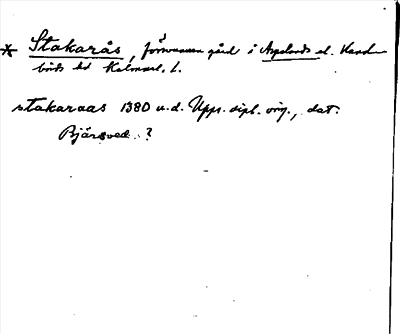 * Stakarås, försvunnen gård i Aspelands el. Hand-
börds hd Kalmar l.
stakaraas 1380 u.d. Upps. dipl. orig., dat.
Bjärsved ?